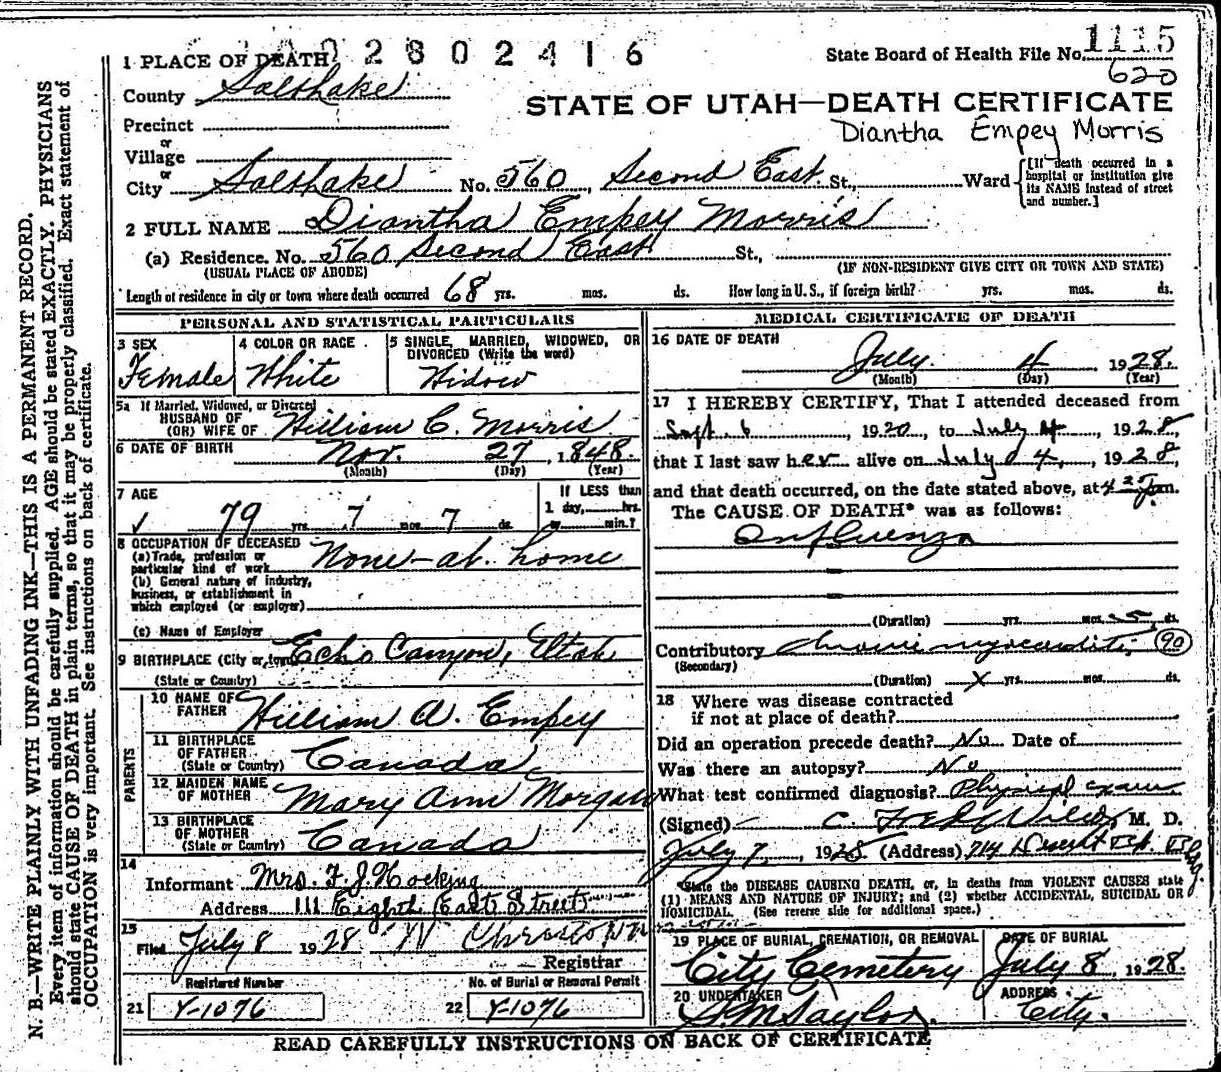 1 PLACE OF DEATH 2 8 0 2 4 1 6
State Board of Health File No. 1115
620
County Salt Lake
STATE OF UTAH—DEATH CERTIFICATE
Diantha Empey Morris
Precinct
or
Village
or
City Salt Lake No. 560, Second East St., Ward
[If death occurred in a hospital or institution give its NAME instead of street and number.]
2 FULL NAME Diantha Empey Morris
(a) Residence. No. 560 Second East St.,
(USUAL PLACE OF ABODE) (IF NON-RESIDENT GIVE CITY OR TOWN AND STATE)
Length of residence in city or town where death occurred 68 yrs. mos. ds. How long in U. S., if foreign birth? yrs. mos. ds.
PERSONAL AND STATISTICAL PARTICULARS
3 SEX
Female
4 COLOR OR RACE
White
5 SINGLE, MARRIED, WIDOWED, OR DIVORCED (Write the word)
Widow
5a If Married, Widowed, or Divorced
HUSBAND OF
(OR) WIFE OF William C. Morris
6 DATE OF BIRTH Nov. 27, 1848
(Month) (Day) (Year)
7 AGE
79 yrs. 7 mos. 7 ds.
If LESS than
1 day, hrs.
or min.?
8 OCCUPATION OF DECEASED
(a) Trade, profession or
particular kind of work None - at home
(b) General nature of industry,
business, or establishment in
which employed (or employer)
(c) Name of Employer
9 BIRTHPLACE (City or town) Echo Canyon, Utah
(State or Country)
PARENTS
10 NAME OF
FATHER William A. Empey
11 BIRTHPLACE
OF FATHER
(State or Country) Canada
12 MAIDEN NAME
OF MOTHER Mary Ann Morgan
13 BIRTHPLACE
OF MOTHER
(State or Country) Canada
14
Informant Mrs. F. J. Hocking
Address 111 Eighth East Street
15
Filed July 8 1928
Registrar
Registered Number
21 Y-1076
No. of Burial or Removal Permit
22 Y-1076
MEDICAL CERTIFICATE OF DEATH
16 DATE OF DEATH
July 4 1928.
(Month) (Day) (Year)
17 I HEREBY CERTIFY, That I attended deceased from
Sept. 6, 1920, to July 4, 1928,
that I last saw her alive on July 4, 1928,
and that death occurred, on the date stated above, at 4 25 pm.
The CAUSE OF DEATH* was as follows:
Influenza
(Duration) yrs. mos. 5 ds.
Contributory Chronic myocarditis, 90
(Secondary)
(Duration) X yrs. mos. ds.
18 Where was disease contracted
if not at place of death?
Did an operation precede death? No Date of
Was there an autopsy? No
What test confirmed diagnosis? Physical exam
(Signed) C. M. D.
July 7, 1928 (Address) 714 Deseret Bk. Bldg.
*State the DISEASE CAUSING DEATH, or, in deaths from VIOLENT CAUSES state
(1) MEANS AND NATURE OF INJURY; and (2) whether ACCIDENTAL, SUICIDAL OR
HOMICIDAL. (See reverse side for additional space.)
19 PLACE OF BURIAL, CREMATION, OR REMOVAL
City Cemetery
DATE OF BURIAL
July 8, 1928.
20 UNDERTAKER
S. M. Taylor
ADDRESS
City.
READ CAREFULLY INSTRUCTIONS ON BACK OF CERTIFICATE
N. B.—WRITE PLAINLY WITH UNFADING INK—THIS IS A PERMANENT RECORD.
Every item of information should be carefully supplied. AGE should be stated EXACTLY. PHYSICIANS
should state CAUSE OF DEATH in plain terms, so that it may be properly classified. Exact statement of
OCCUPATION is very important. See instructions on back of certificate.